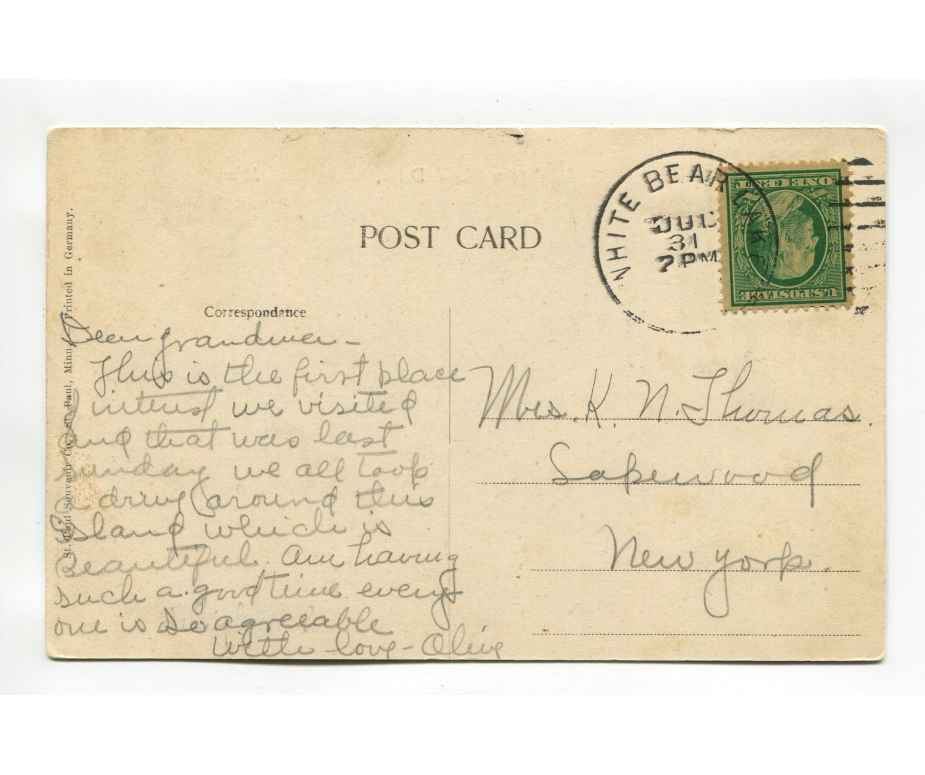 POST CARD
WHITE BEAR LAKE
JUL
31
7 PM
ONE CENT
U.S. POSTAGE
Correspondance
Dear grandma -
This is the first place
of interest we visited
and that was last
sunday we all took
a drive around this
Island which is
beautiful. Am having
such a good time every
one is so agreeable
With love - Olive
Mrs. K. N. Thomas.
Lakewood
New York.
St. Paul Souvenir Co., St. Paul, Minn. Printed in Germany.